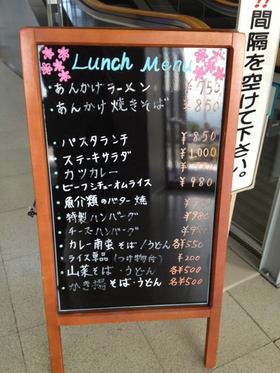 Lunch Menu
あんかけラーメン ¥750
あんかけ焼きそば ¥850
パスタランチ ¥850
ステーキサラダ ¥1,000
カツカレー
ビーフシチューオムライス ¥980
魚介類のバター焼
特製ハンバーグ ¥980
チーズハンバーグ ¥980
カレー南蛮そば/うどん 各¥550
ライス単品(つけ物付) ¥200
山菜そば・うどん 各¥500
かき揚そば・うどん 各¥500
!!
間隔を空けて下さい。